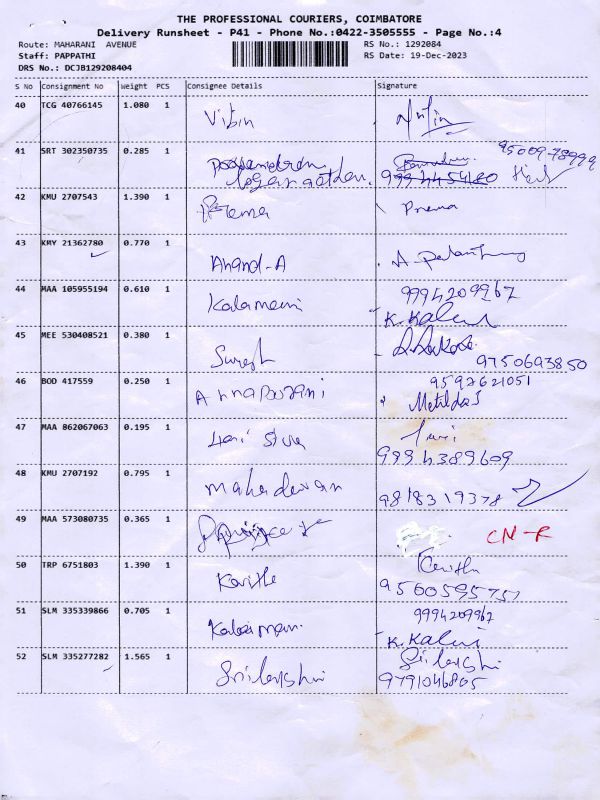 THE PROFESSIONAL COURIERS, COIMBATORE
Delivery Runsheet - P41 - Phone No.:0422-3505555 - Page No.:4
Route: MAHARANI AVENUE
RS No.: 1292084
Staff: PAPPATHI
RS Date: 19-Dec-2023
DRS No.: DCJB129208404
S No Consignment No Weight PCS Consignee Details Signature
40 TCG 40766145 1.080 1 Vibin
41 SRT 302350735 0.285 1 loganathan. 95009-78999
9994454180
42 KMU 2707543 1.390 1 Prema Prema
43 KMY 21362780 0.770 1 Anand-A
44 MAA 105955194 0.610 1 Kalamani 9994209967
K. Kalai
45 MEE 530408521 0.380 1 Suresh
9750693850
46 BOD 417559 0.250 1 Annapoorani 9597621051
Matilda J
47 MAA 862067063 0.195 1 Hari Siva Hari
9994389609
48 KMU 2707192 0.795 1 mahadevan 9818319378
49 MAA 573080735 0.365 1 CN-R
50 TRP 6751803 1.390 1 Kavitha Kavitha
9560595751
51 SLM 335339866 0.705 1 Kalaimani 9994209967
K. Kalai
52 SLM 335277282 1.565 1 Srilakshmi Srilakshmi
9791046805